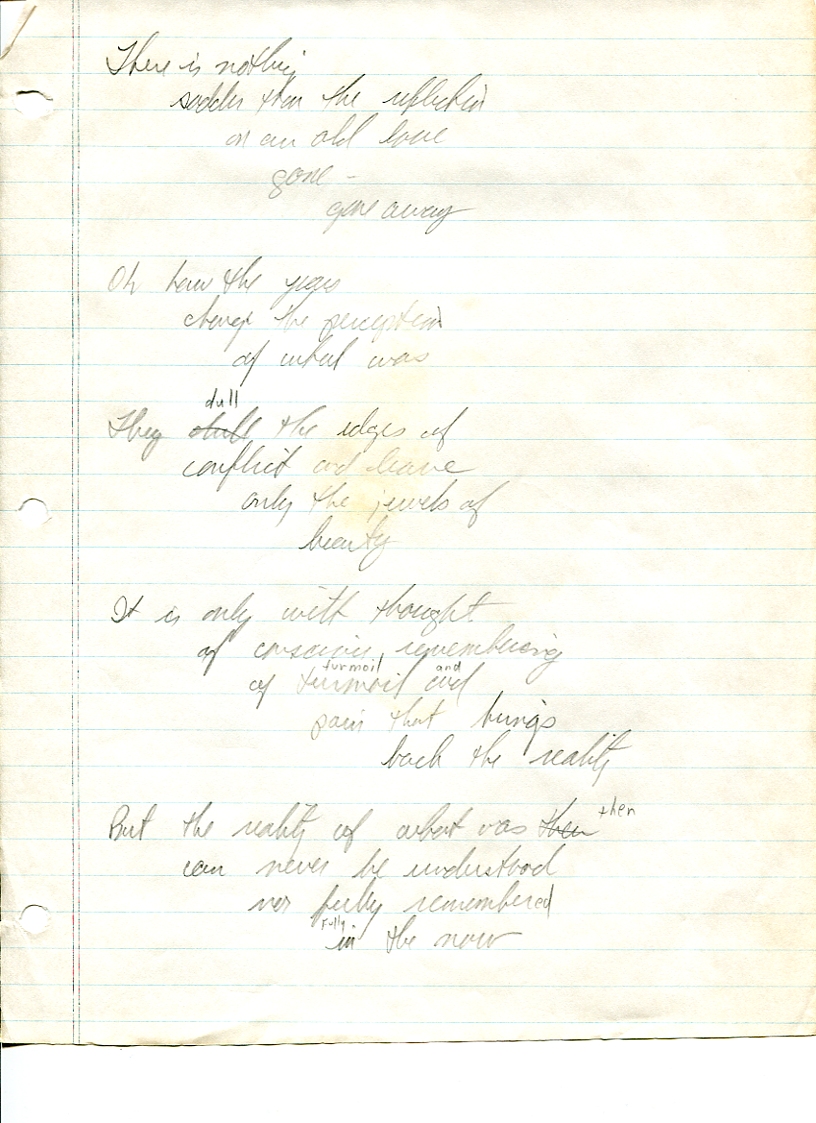 There is nothing
sadder than the reflection
on an old love
gone -
gone away
Oh how the years
change the perception
of what was
dull
They dull the edges of
conflict and leave
only the jewels of
beauty
It is only with thought
of conscious remembering
turmoil and
of turmoil and
pain that brings
back the reality
then
But the reality of what was then
can never be understood
nor fully remembered
Fully
in the now